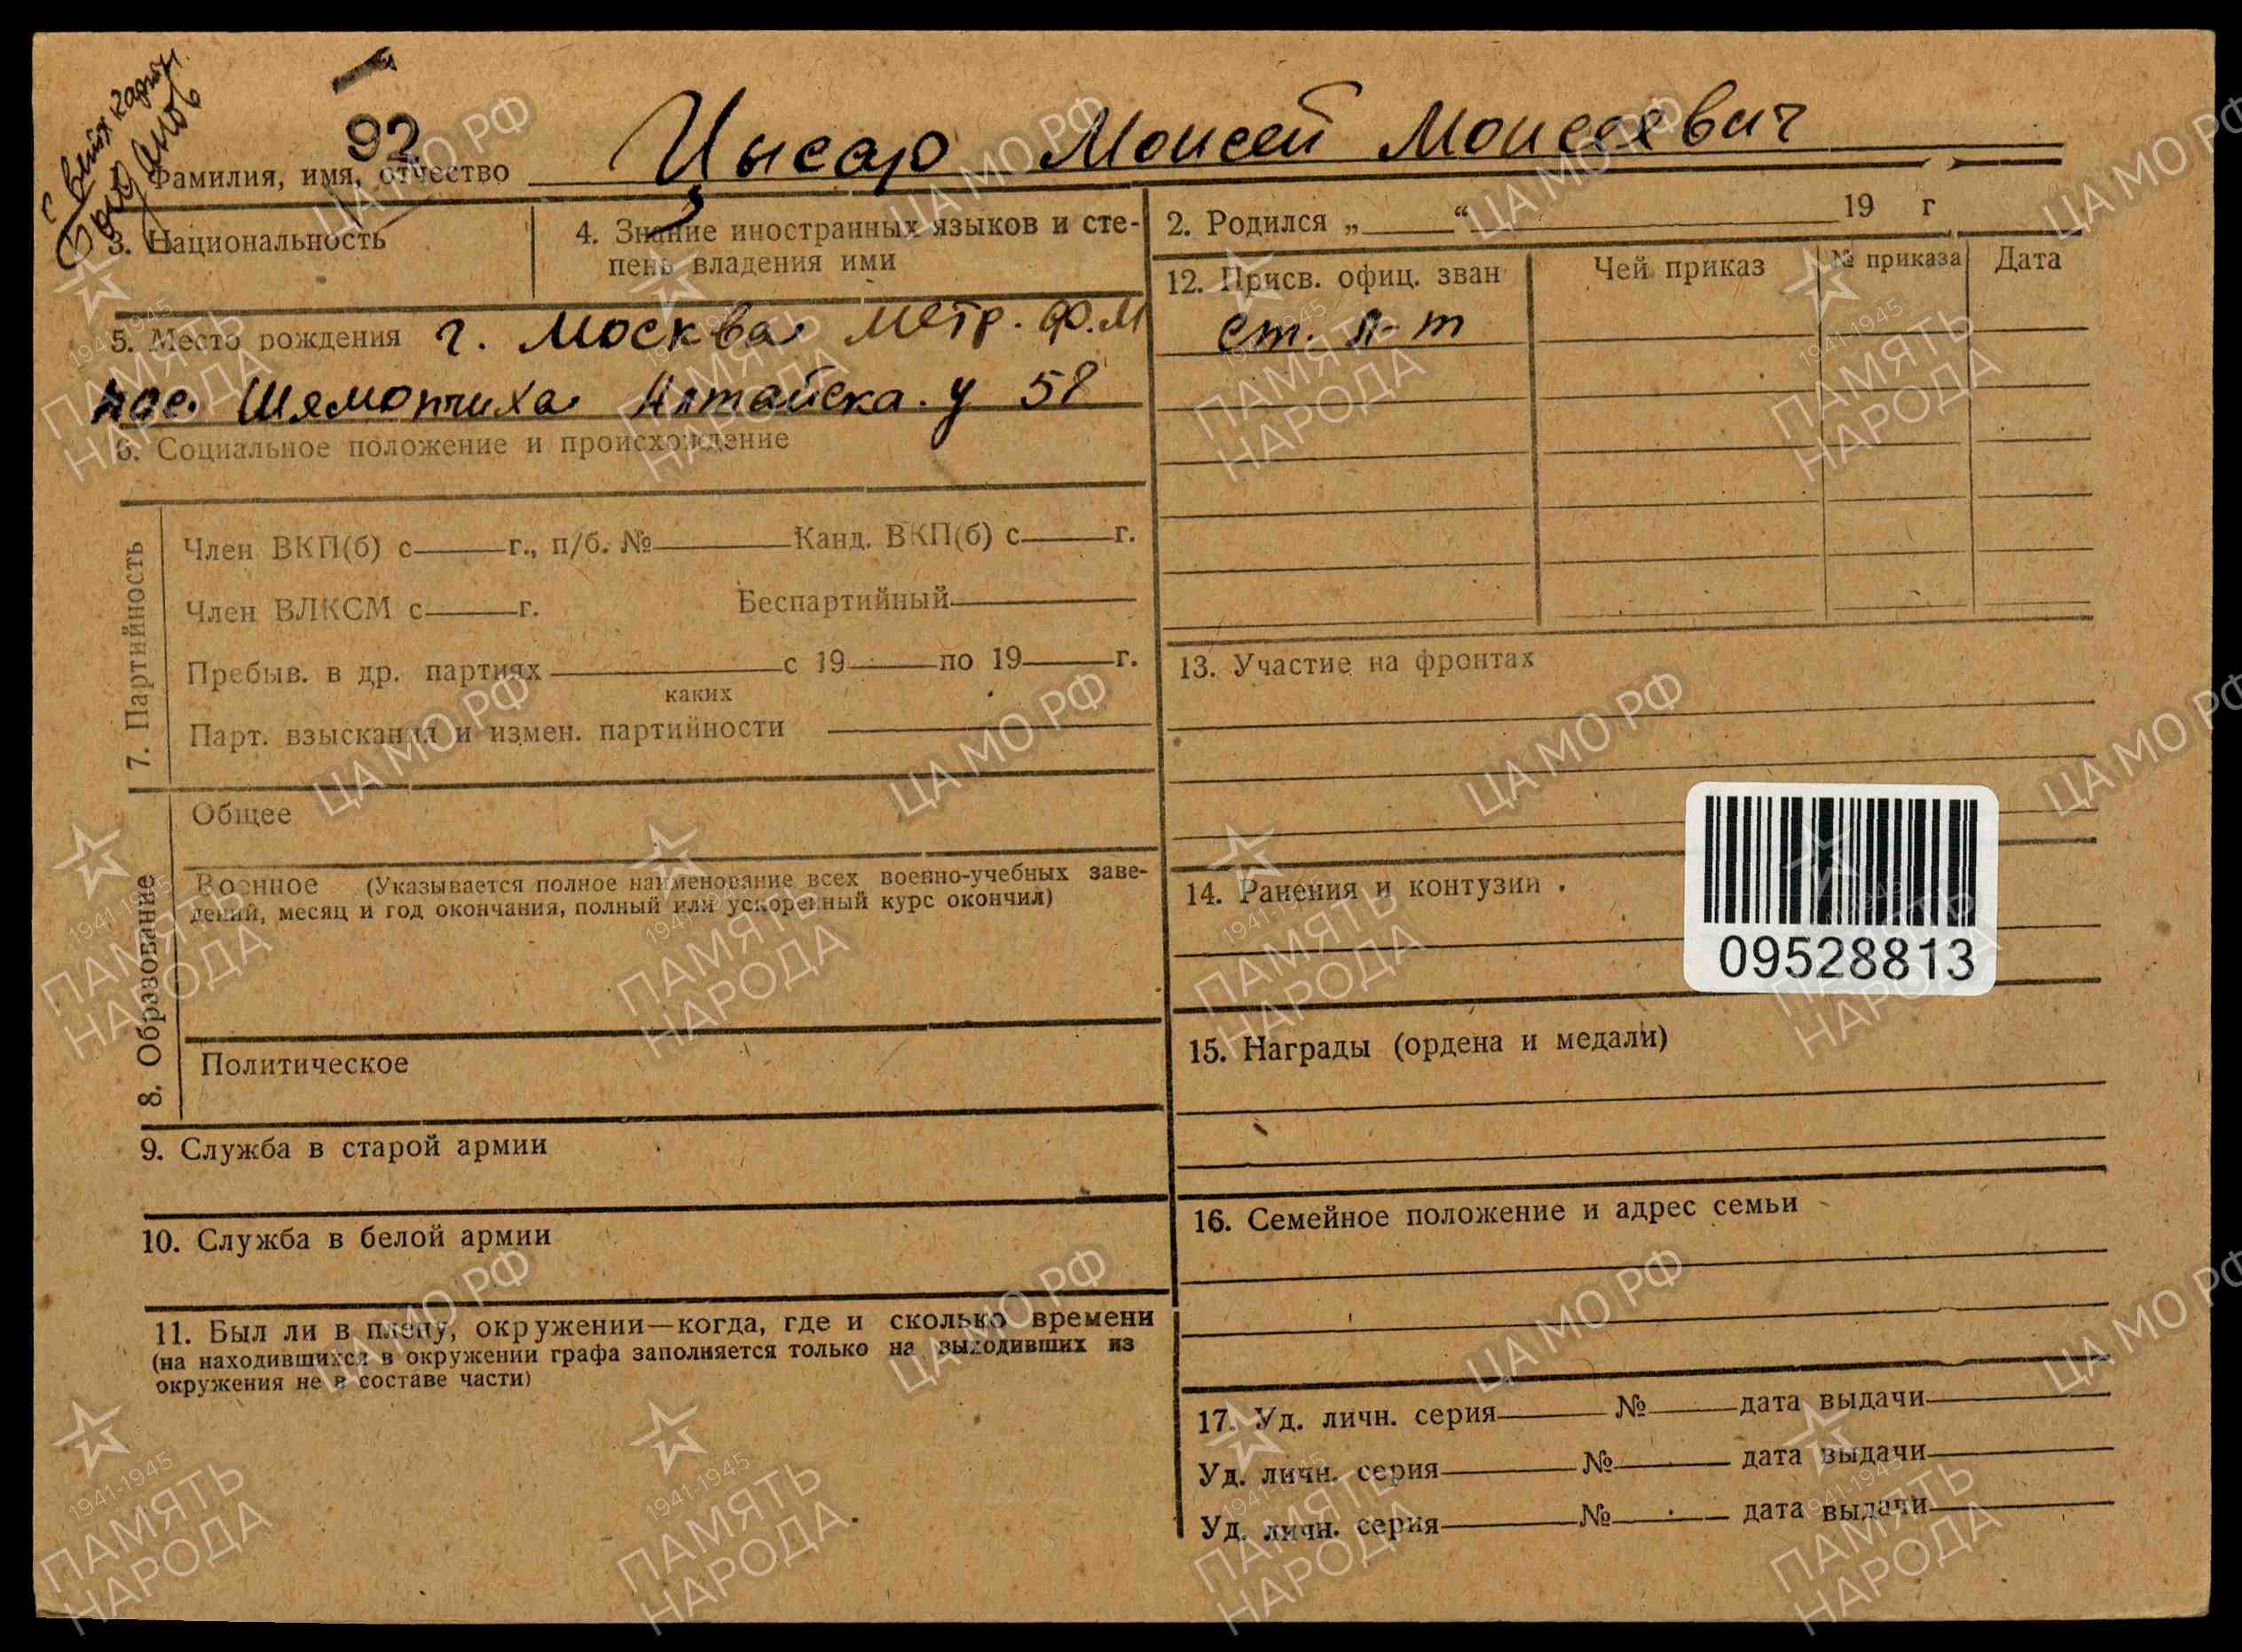 92
Фамилия, имя, отчество Цысар Моисей Моисеевич
3. Национальность
4. Знание иностранных языков и сте-
пень владения ими
2. Родился „ “ 19 г
5. Место рождения г. Москва метр. ф.М
пос. Шямопчиха Алтайска. у 58
6. Социальное положение и происхождение
7. Партийность
Член ВКП(б) с г., п/б. № Канд. ВКП(б) с г.
Член ВЛКСМ с г. Беспартийный
Пребыв. в др. партиях с 19 по 19 г.
каких
Парт. взыскания и измен. партийности
8. Образование
Общее
Военное (Указывается полное наименование всех военно-учебных заве-
дений, месяц и год окончания, полный или ускоренный курс окончил)
Политическое
9. Служба в старой армии
10. Служба в белой армии
11. Был ли в плену, окружении—когда, где и сколько времени
(на находившихся в окружении графа заполняется только на выходивших из
окружения не в составе части)
12. Присв. офиц. зван Чей приказ № приказа Дата
ст. л-т
13. Участие на фронтах
14. Ранения и контузии .
09528813
15. Награды (ордена и медали)
16. Семейное положение и адрес семьи
17. Уд. личн. серия № дата выдачи
Уд. личн. серия № дата выдачи
Уд. личн. серия № дата выдачи
ЦА МО РФ
1941-1945
ПАМЯТЬ
НАРОДА